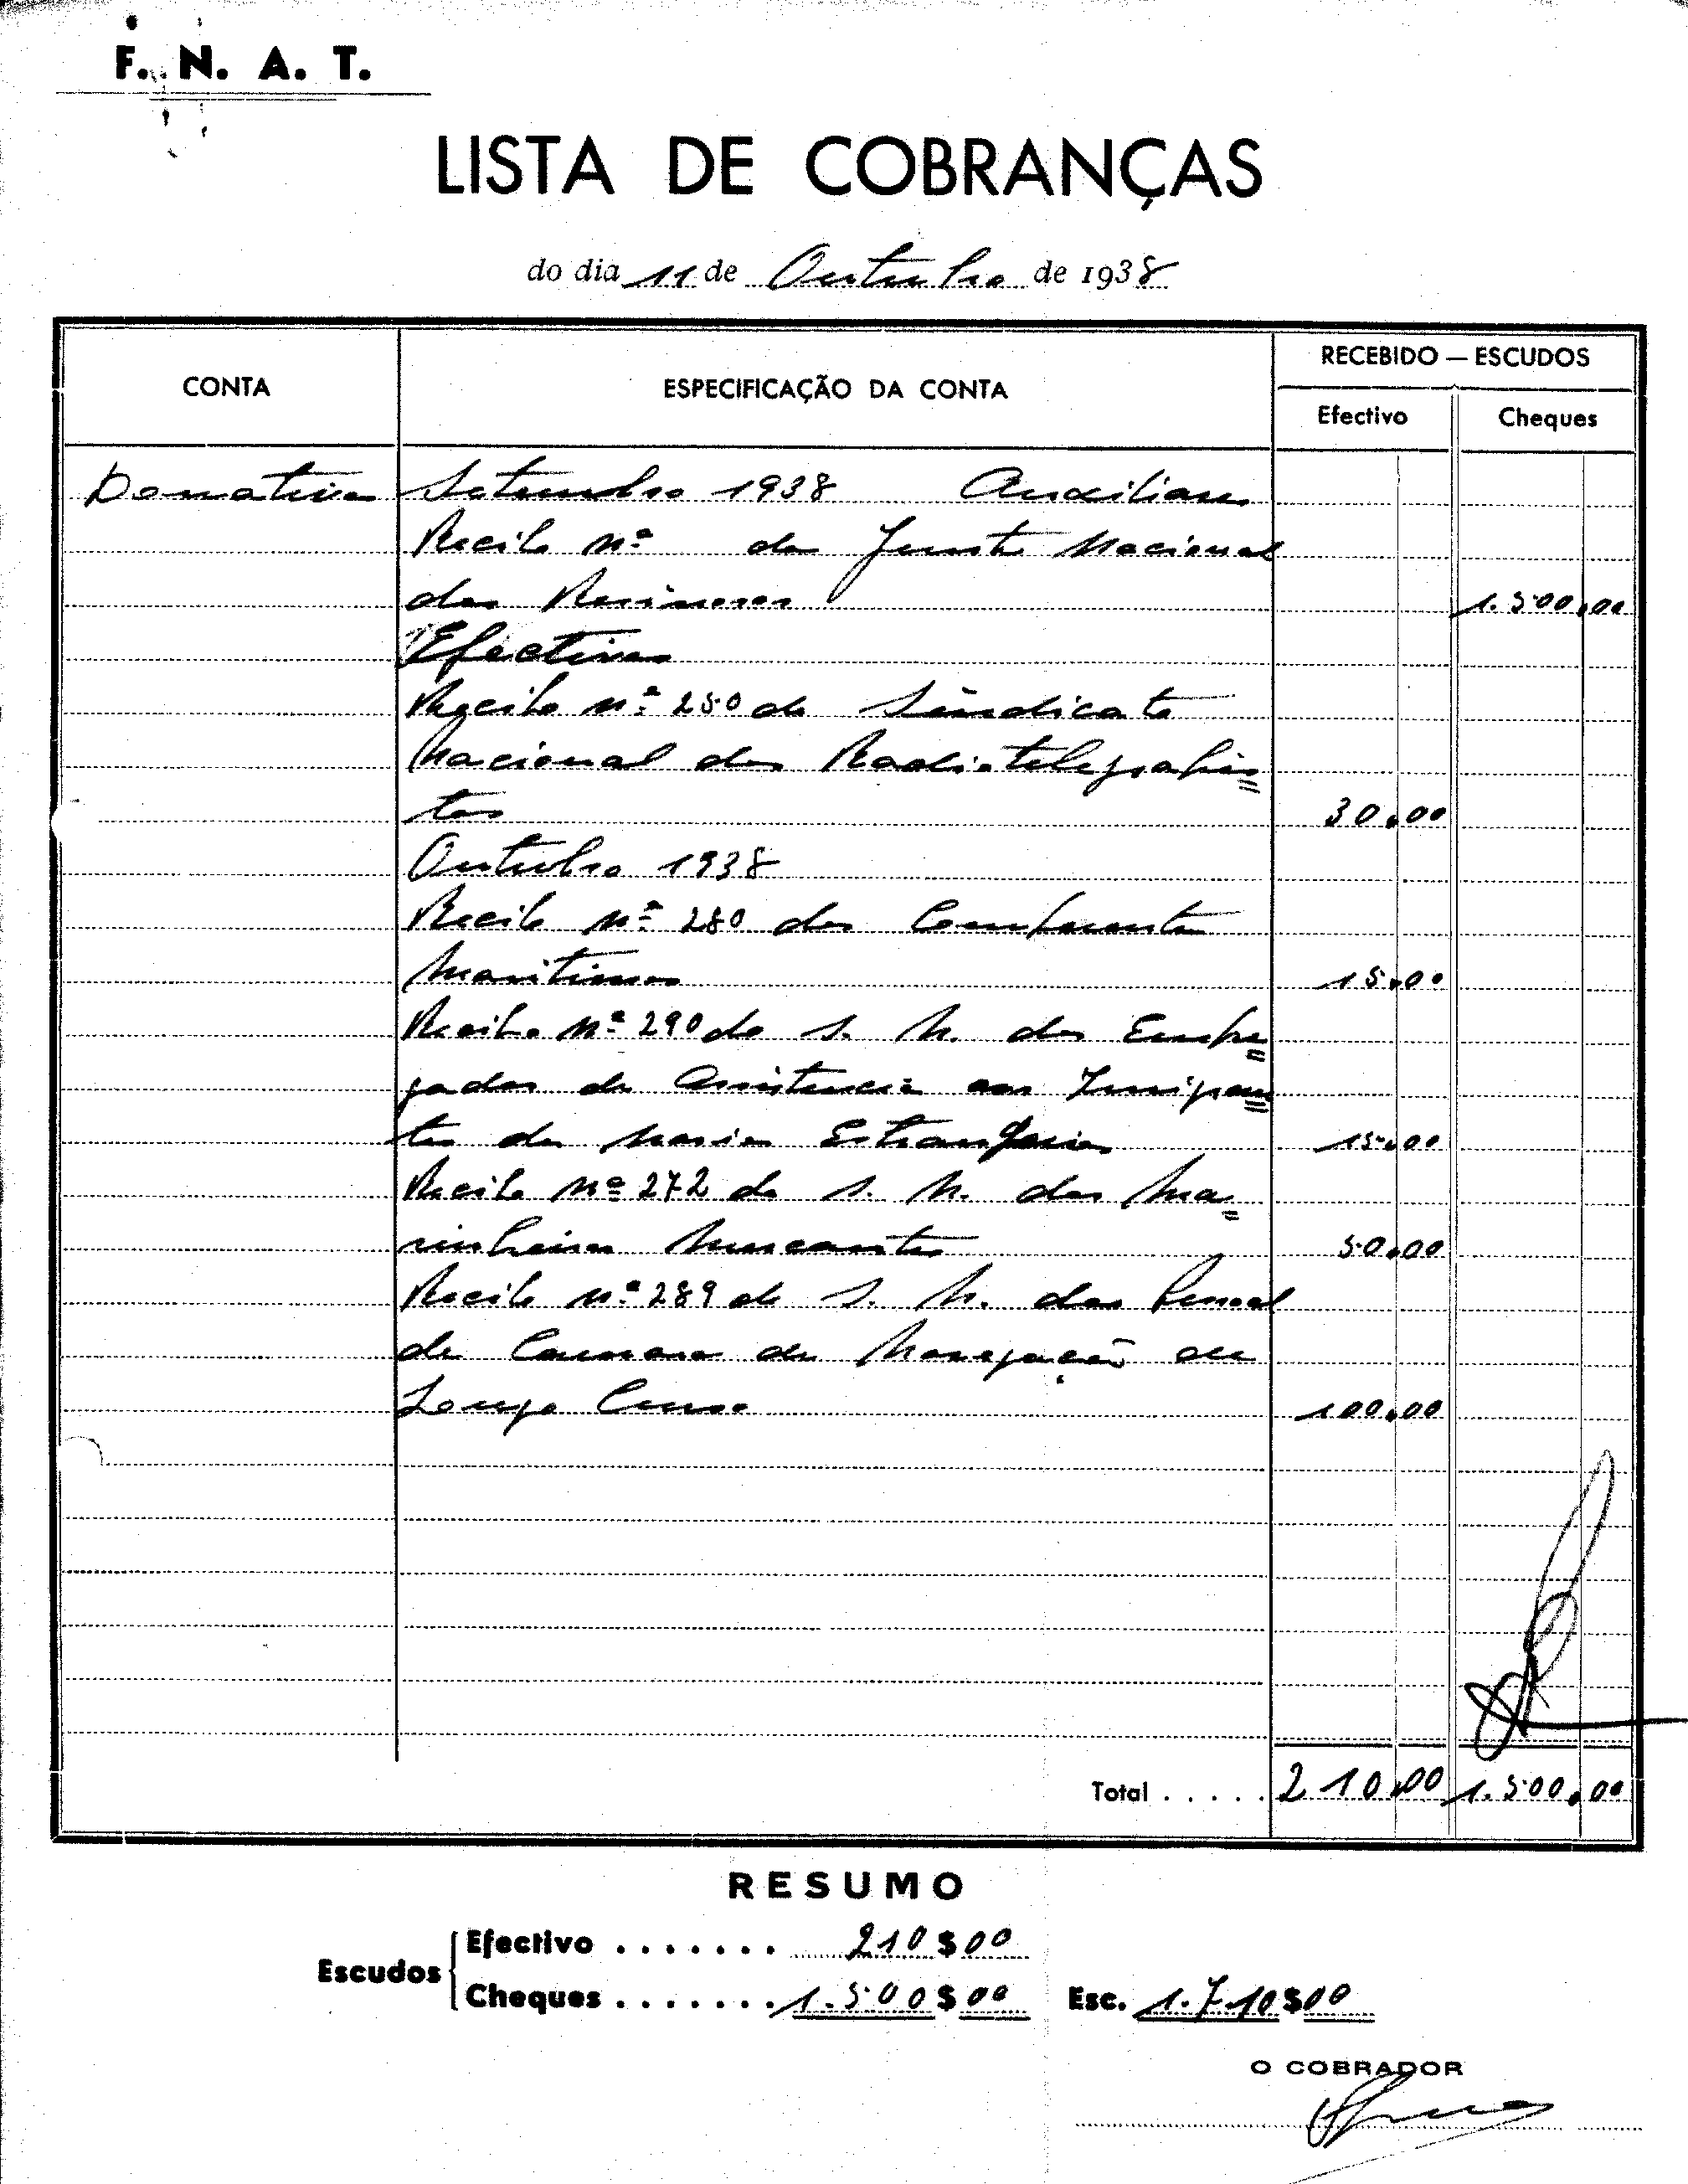 F. N. A. T.
LISTA DE COBRANÇAS
do dia 11 de Outubro de 1938
CONTA
ESPECIFICAÇÃO DA CONTA
RECEBIDO — ESCUDOS
Efectivo
Cheques
Donativos Setembro 1938 Auxiliares
Recibo nº da Junta Nacional
dos Resinosos 1.500,00
Efectivos
Recibo nº 250 do Sindicato
Nacional dos Radiotelegrafis=
tas 30,00
Outubro 1938
Recibo nº 280 dos
Maritimos 15,00
Recibo nº 290 do S. N. dos Empre=
gados de Assistencia aos
tes de Navios Estrangeiros 15,00
Recibo nº 272 do S. N. dos Ma=
rinheiros Mercantes 50,00
Recibo nº 289 do S. N. do Pessoal
de Camaras da Navegação de
Longo Curso 100,00
Total ..... 210,00 1.500,00
RESUMO
Escudos
Efectivo ....... 210$00
Cheques ....... 1.500$00 Esc. 1.710$00
O COBRADOR